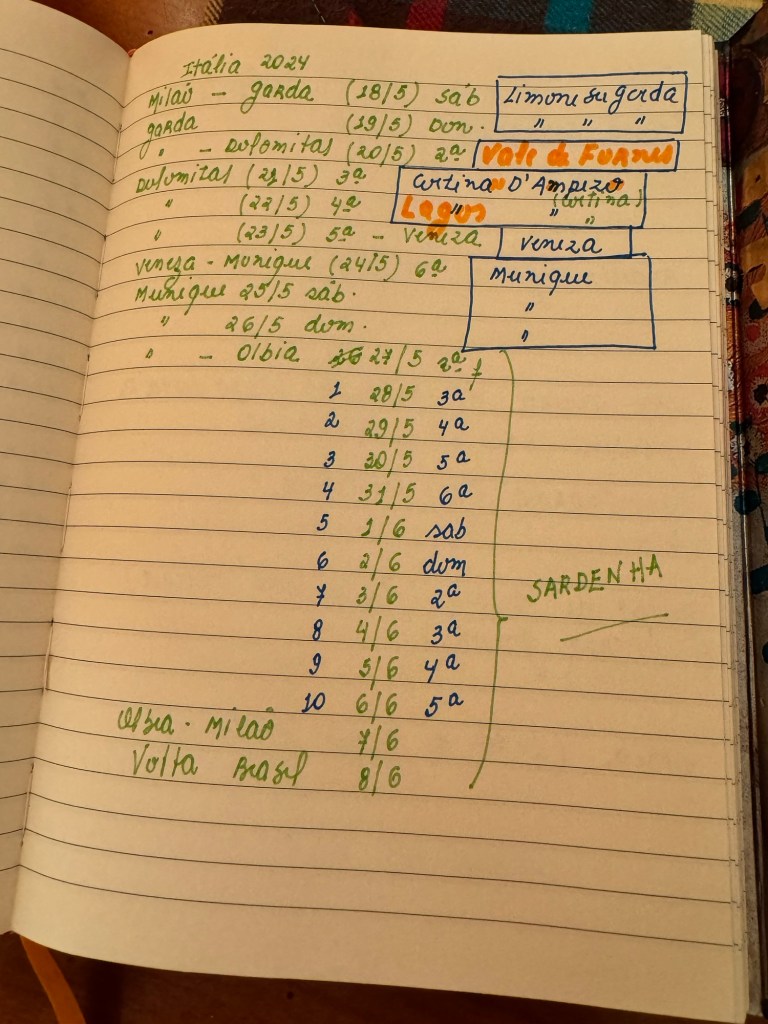 Itália 2024
Milaõ - garda (18/5) sáb Limone su garda
garda (19/5) Dom. " " "
" - Dolomitas (20/5) 2ª Vale de Funnes
Dolomitas (21/5) 3ª Cortina D'Ampezo
" (22/5) 4ª Lagos " " (cortina)
" (23/5) 5ª - Veneza " Veneza
Veneza - Munique (24/5) 6ª Munique
Munique 25/5 sáb. "
" 26/5 dom. "
" - Olbia 27/5 2ª f
1 28/5 3ª
2 29/5 4ª
3 30/5 5ª
4 31/5 6ª
5 1/6 sab
6 2/6 dom
7 3/6 2ª
SARDENHA
8 4/6 3ª
9 5/6 4ª
10 6/6 5ª
Olbia - Milaõ 7/6
Volta Brasil 8/6